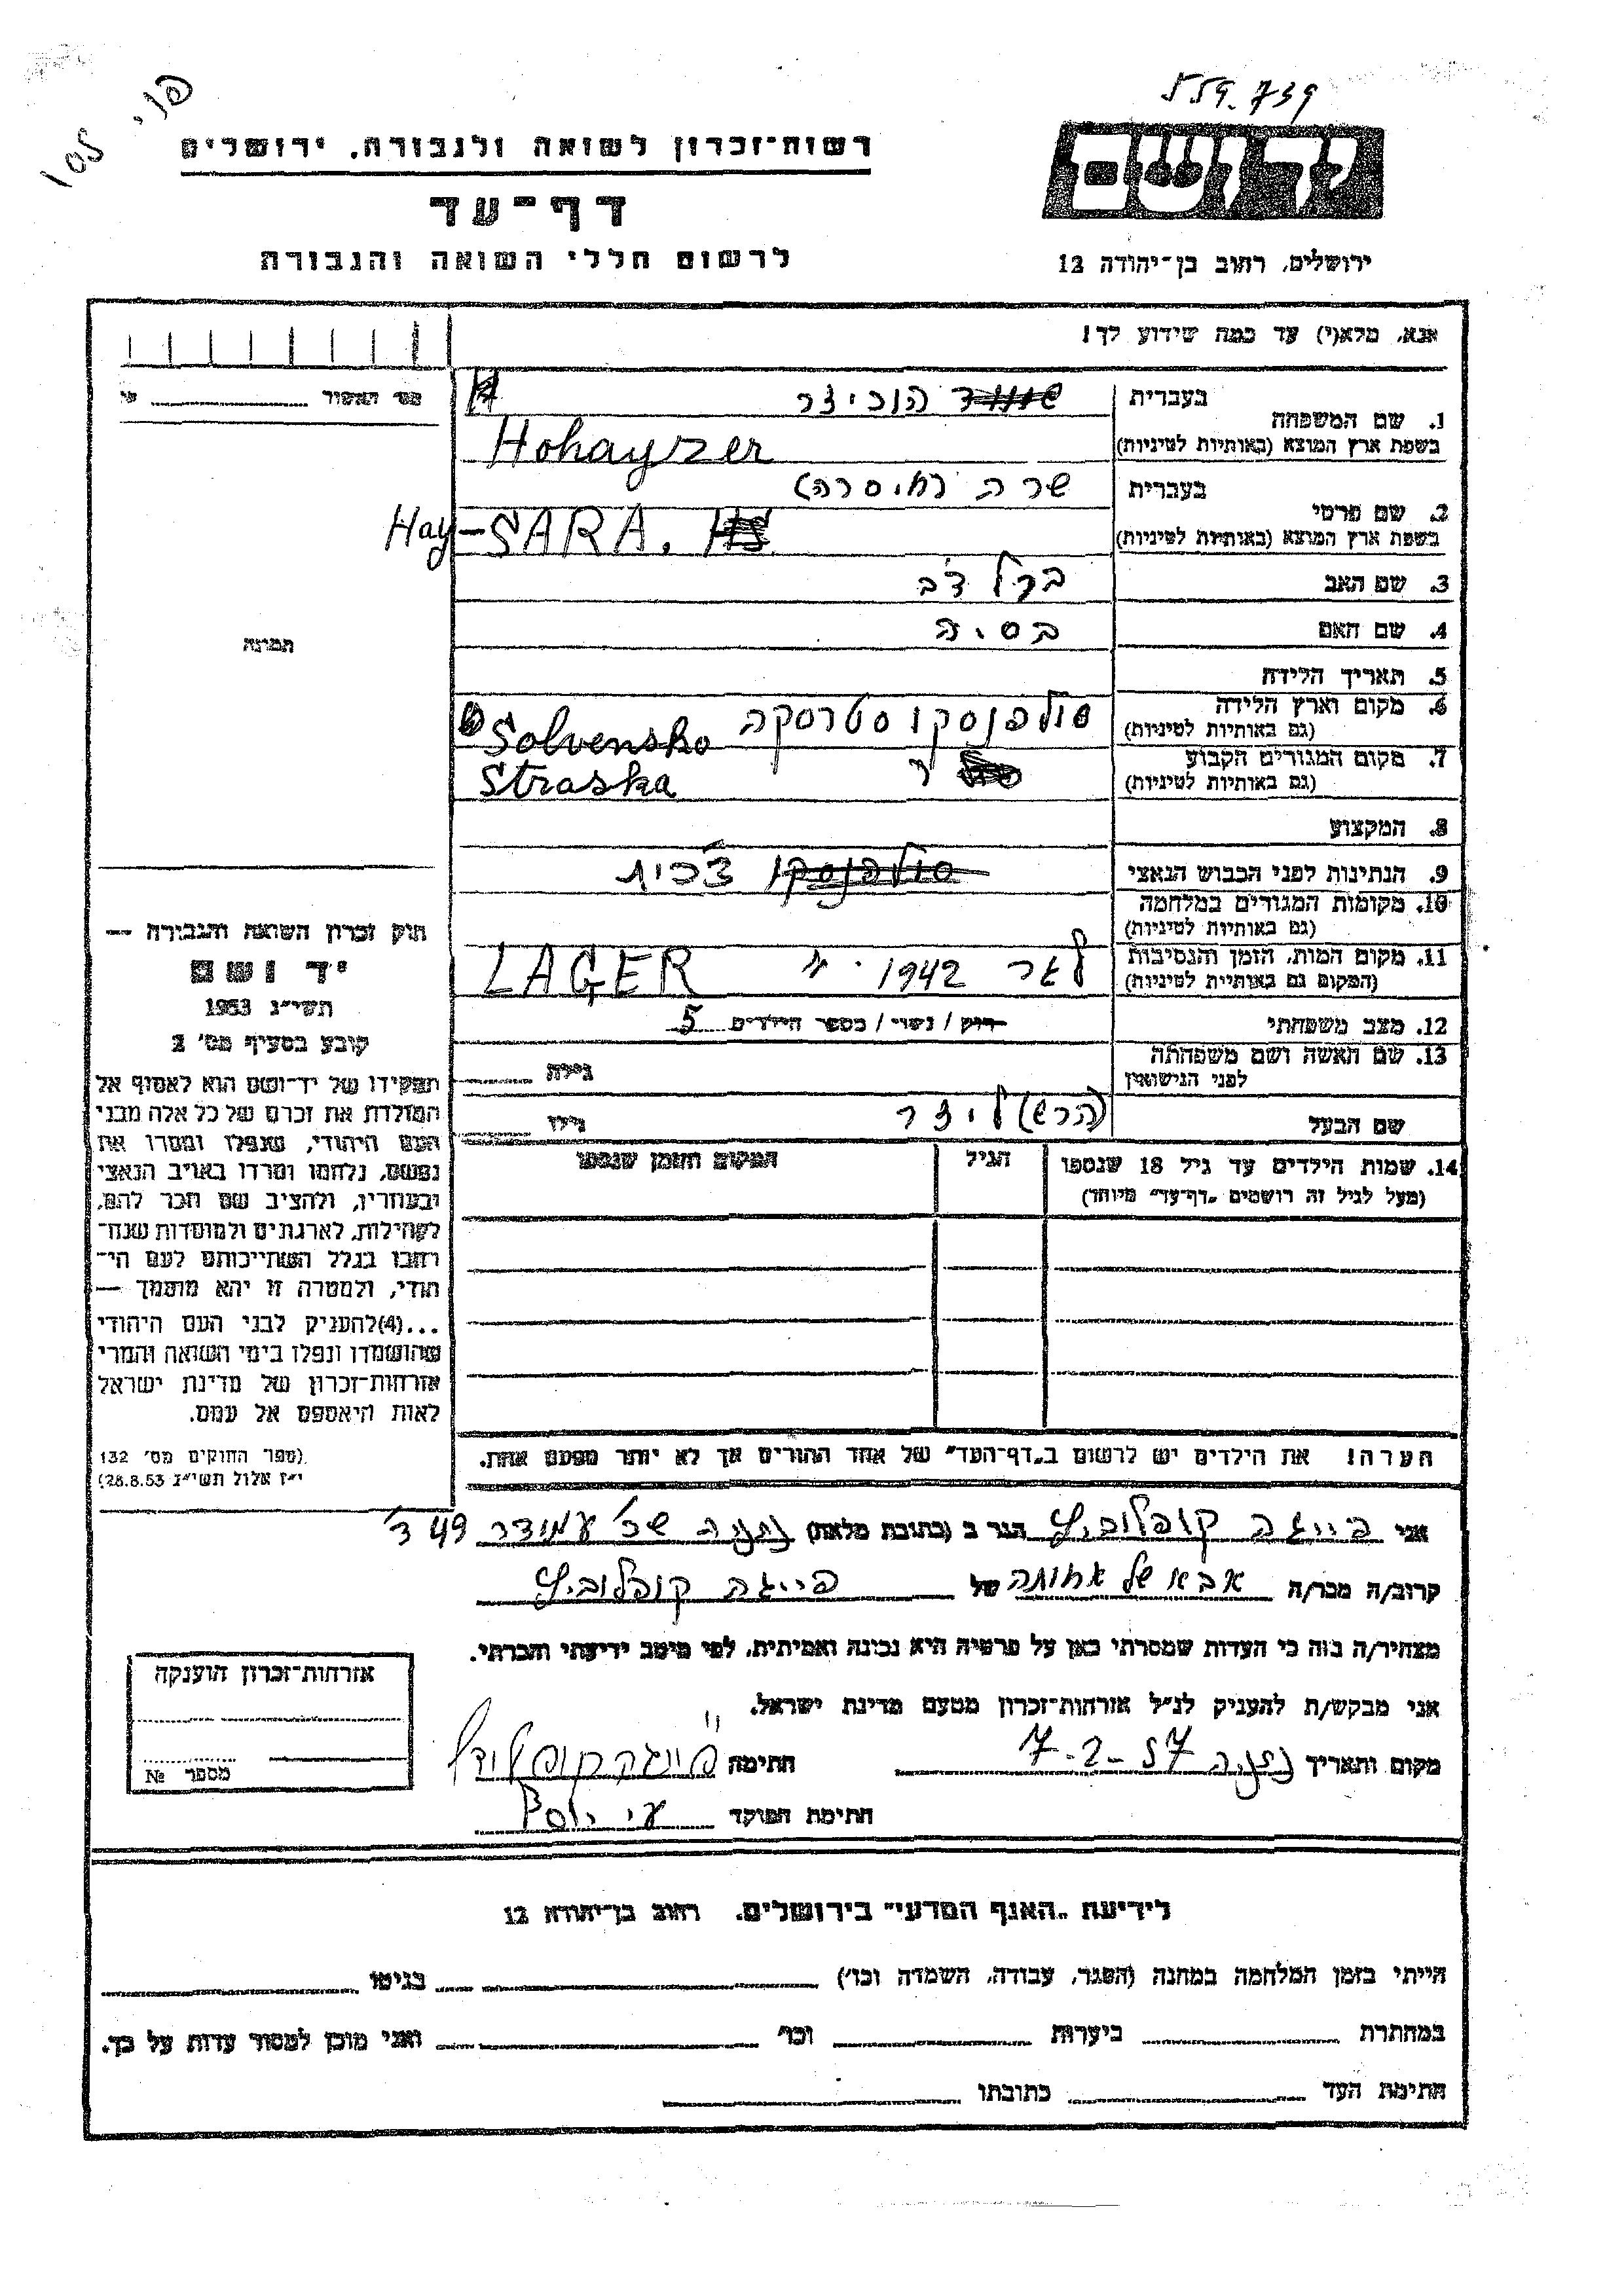 559.739
רשות־זכרון לשואה ולגבורה, ירושלים
דף־עד
לרשום חללי השואה והגבורה
יד ושם
ירושלים, רחוב בן־יהודה 12
אנא, מלא(י) עד כמה שידוע לך!
מס' האשור
1. שם המשפחה
בעברית הוכיצר
בשפת ארץ המוצא (באותיות לטיניות) Hohayzer
2. שם פרטי
בעברית שרה
בשפת ארץ המוצא (באותיות לטיניות) Hay-SARA.
3. שם האב ברל דב
4. שם האם בסיה
תמונה
5. תאריך הלידה
6. מקום וארץ הלידה
(גם באותיות לטיניות) סולפנסקו סטרסקה Solvensko
7. מקום המגורים הקבוע
(גם באותיות לטיניות) Straska
8. המקצוע
9. הנתינות לפני הכבוש הנאצי סולפנסקו צ'כית
10. מקומות המגורים במלחמה
(גם באותיות לטיניות)
11. מקום המות, הזמן והנסיבות
(המקום גם באותיות לטיניות) לאגר 1942 LAGER
12. מצב משפחתי רוק / נשוי / מספר הילדים 5
13. שם האשה ושם משפחתה
לפני הנישואין גילה
שם הבעל (הרש) ליצר גילו
14. שמות הילדים עד גיל 18 שנספו הגיל המקום והזמן שנספו
(מעל לגיל זה רושמים "דף־עד" מיוחד)
הערה! את הילדים יש לרשום ב"דף־העד" של אחד ההורים אך לא יותר מפעם אחת.
חוק זכרון השואה והגבורה —
יד ושם
תשי"ג 1953
קובע בסעיף מס' 2
תפקידו של יד־ושם הוא לאסוף אל
המולדת את זכרם של כל אלה מבני
העם היהודי, שנפלו ומסרו את
נפשם, נלחמו ומרדו באויב הנאצי
ובעוזריו, ולהציב שם וזכר להם,
לקהילות, לארגונים ולמוסדות שנח־
רבו בגלל השתייכותם לעם הי־
הודי, ולמטרה זו יהא מוסמך —
...(4)להעניק לבני העם היהודי
שהושמדו ונפלו בימי השואה והמרי
אזרחות־זכרון של מדינת ישראל
לאות היאספם אל עמם.
(ספר החוקים מס' 132
י"ז אלול תשי"ג 28.8.53)
אני פייגה קופלוביץ הגר ב (כתובת מלאה) נתניה שכ' עמידר 49 ד'
קרוב/ה מכר/ה אבא של אחותה של פייגה קופלוביץ
מצהיר/ה בזה כי העדות שמסרתי כאן על פרטיה היא נכונה ואמיתית, לפי מיטב ידיעתי והכרתי.
אני מבקש/ת להעניק לנ"ל אזרחות־זכרון מטעם מדינת ישראל.
מקום ותאריך נתניה 7-2-57 חתימה
חתימת הפוקד
אזרחות־זכרון הוענקה
מספר №
לידיעת "האגף המדעי" בירושלים, רחוב בן־יהודה 12
הייתי בזמן המלחמה במחנה (הסגר, עבודה, השמדה וכו') בגיטו
במחתרת ביערות וכו' ואני מוכן למסור עדות על כך.
חתימת העד כתובתו